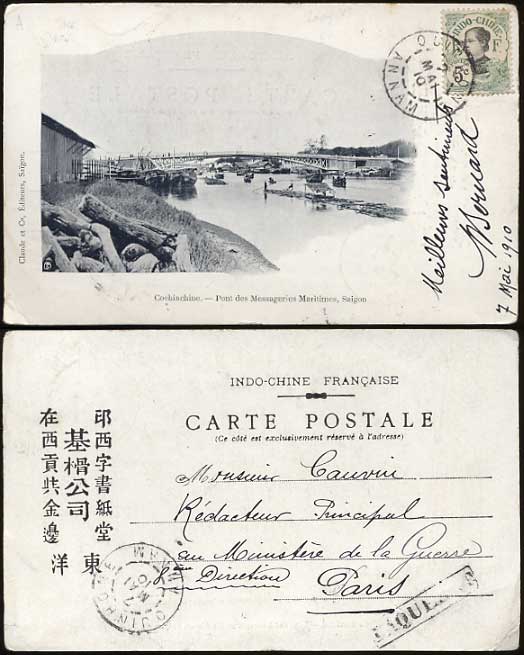 INDO-CHINE
F
5c
QUINHON
ANNAM
7
MAI
10
Claude et Cie, Éditeurs, Saigon.
Meilleurs sentiments
Bernard
7 Mai 1910
Cochinchine. — Pont des Messageries Maritimes, Saigon
INDO-CHINE FRANÇAISE
CARTE POSTALE
(Ce côté est exclusivement réservé à l'adresse)
印西字書紙堂
基榾公司
在西貢共金邊
東
洋
Monsieur Cauvin
Rédacteur Principal
au Ministère de la Guerre
Direction
Paris
QUINHON
ANNAM
7
MAI
10
PAQUEBOT